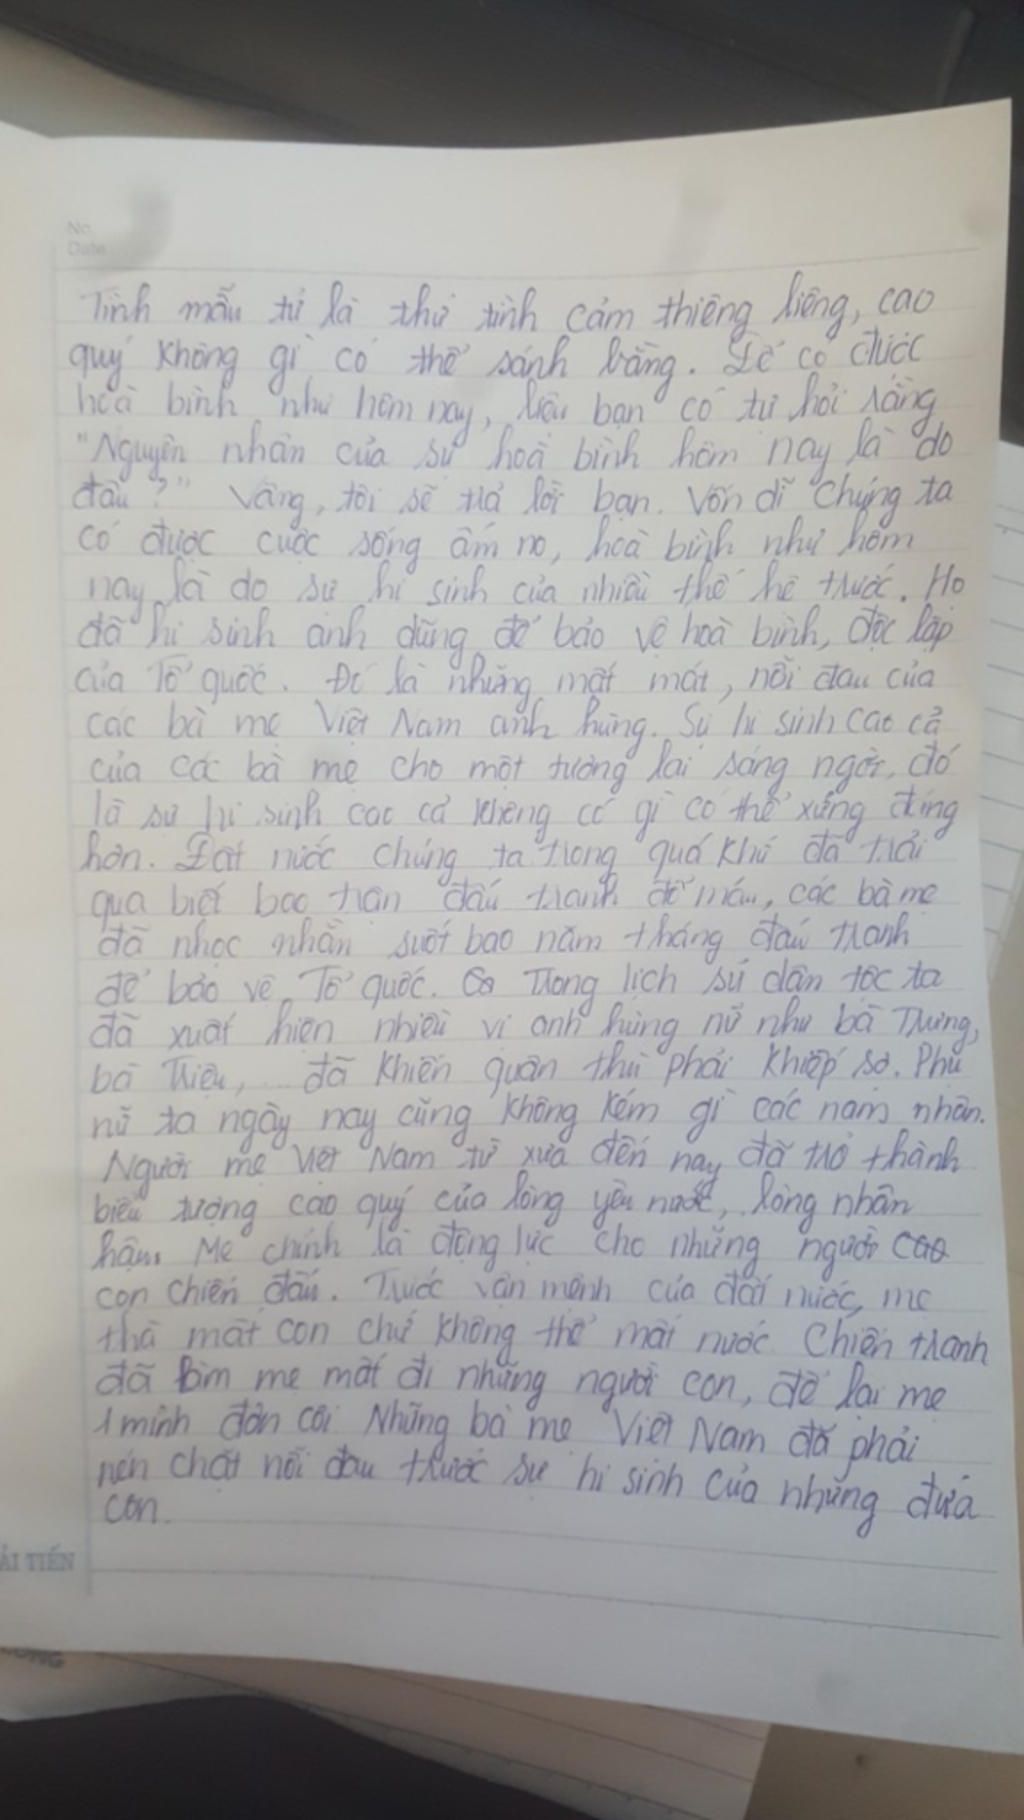 No.
Date
Tình mẫu tử là thứ tình cảm thiêng liêng, cao
quý không gì có thể sánh bằng. Để có được
hoà bình như hôm nay, liệu bạn có tự hỏi rằng
"Nguyên nhân của sự hoà bình hôm nay là do
đâu?" Vâng, tôi sẽ trả lời bạn. Vốn dĩ chúng ta
có được cuộc sống ấm no, hoà bình như hôm
nay là do sự hi sinh của nhiều thế hệ trước. Họ
đã hi sinh anh dũng để bảo vệ hoà bình, độc lập
của Tổ quốc. Đó là những mất mát, nỗi đau của
các bà mẹ Việt Nam anh hùng. Sự hi sinh cao cả
của các bà mẹ cho một tương lai sáng ngời, đó
là sự hi sinh cao cả không có gì có thể xứng đáng
hơn. Đất nước chúng ta trong quá khứ đã trải
qua biết bao trận đấu tranh đổ máu, các bà mẹ
đã nhọc nhằn suốt bao năm tháng đấu tranh
để bảo vệ Tổ quốc. Trong lịch sử dân tộc ta
đã xuất hiện nhiều vị anh hùng nữ như bà Trưng,
bà Triệu, ... đã khiến quân thù phải khiếp sợ. Phụ
nữ ta ngày nay cũng không kém gì các nam nhân.
Người mẹ Việt Nam từ xưa đến nay đã trở thành
biểu tượng cao quý của lòng yêu nước, lòng nhân
hậu. Mẹ chính là động lực cho những người cao
con chiến đấu. Trước vận mệnh của đất nước, mẹ
thà mất con chứ không thể mất nước. Chiến tranh
đã làm mẹ mất đi những người con, để lại mẹ
1 mình đơn côi. Những bà mẹ Việt Nam đã phải
nén chặt nỗi đau trước sự hi sinh của những đứa
con.
ẢI TIẾN